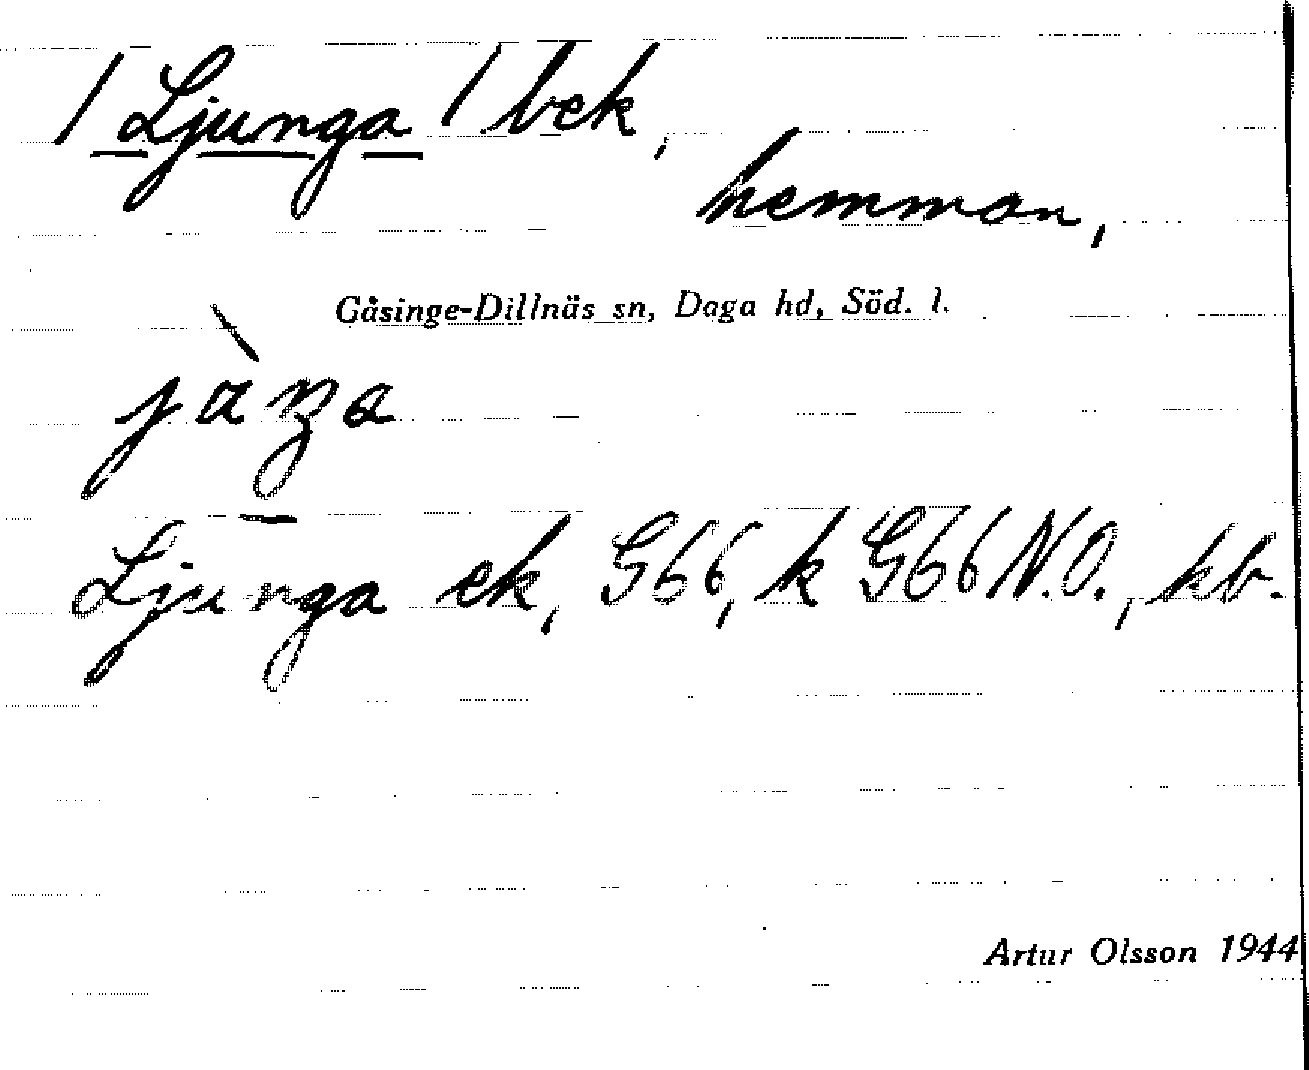 / Ljunga / bek,
hemman,
Gåsinge-Dillnäs sn, Daga hd, Söd. l.
Ljunga ek, G66, k G66 N.O., kb.
Artur Olsson 1944